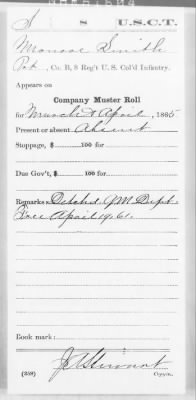 S 8 U.S.C.T.
Monroe Smith
Pvt., Co. B, 8 Reg't U. S. Col'd Infantry.
Appears on
Company Muster Roll
for March & April, 1865
Present or absent Absent
Stoppage, $ 100 for
Due Gov't, $ 100 for
Remarks: Detchd. QM Dept.
April 19, 61.
Book mark:
(359) Copyist.